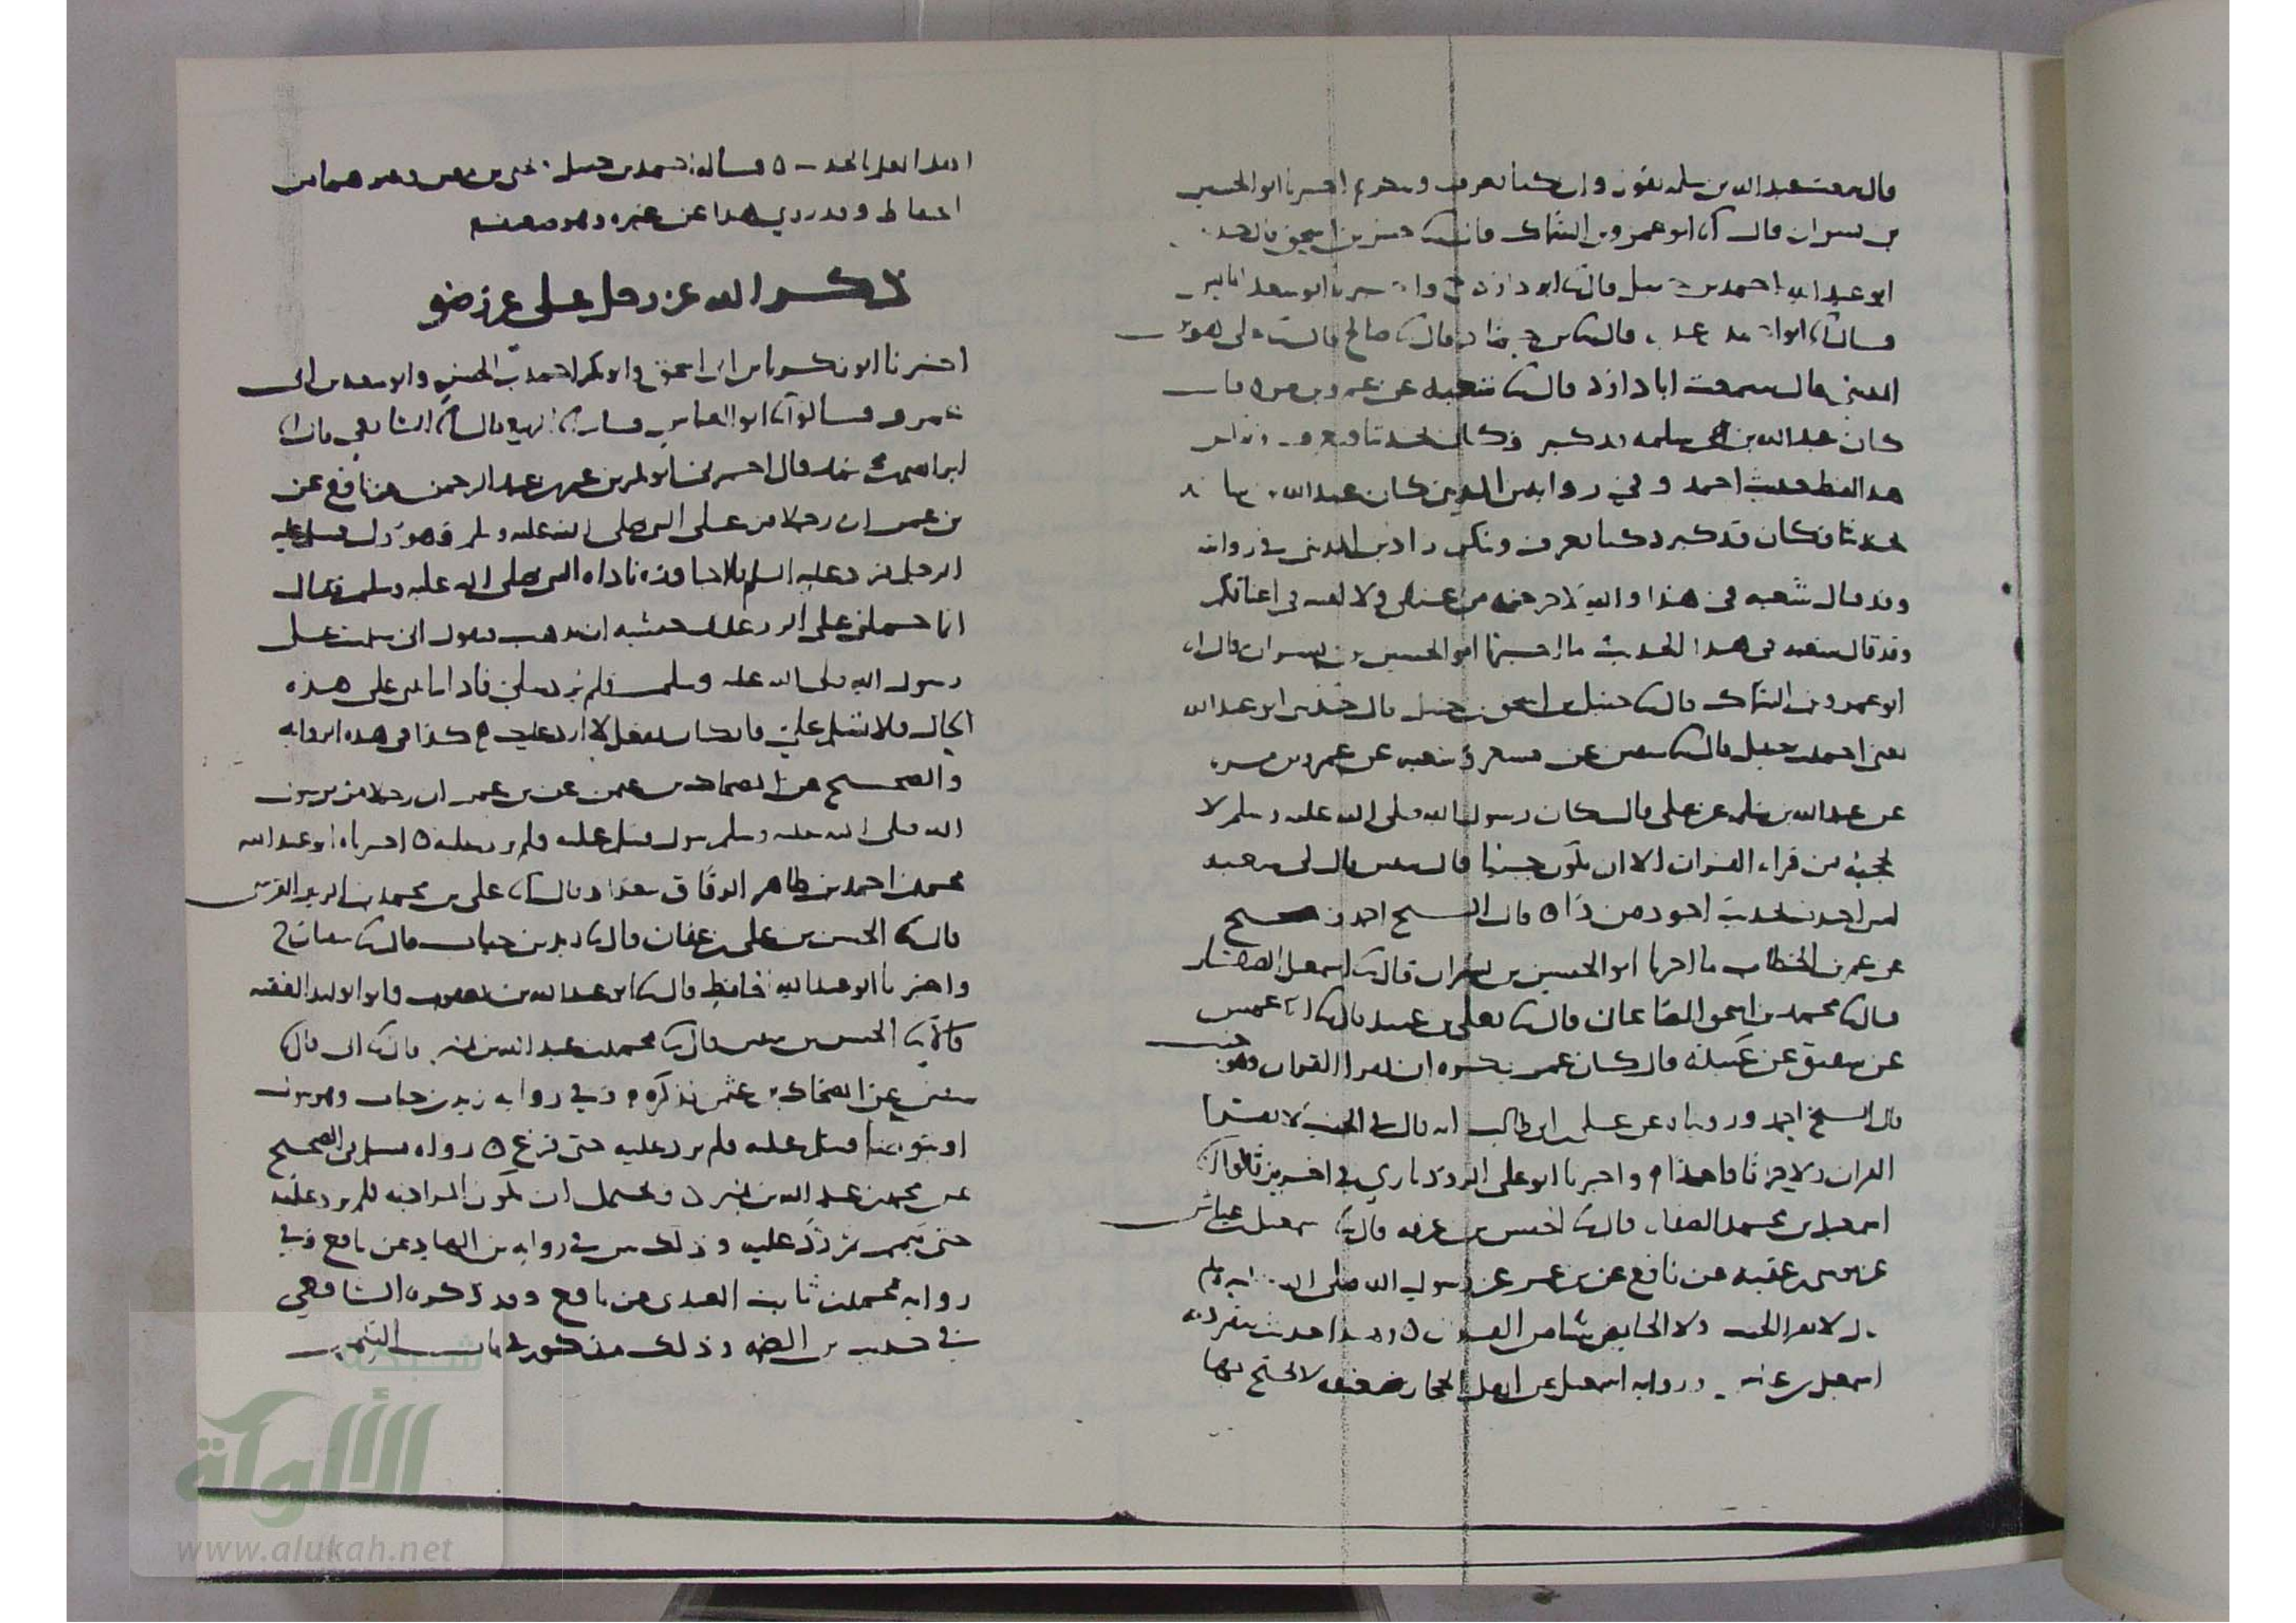 قال سمعت عبد الله بن سلمه يقول وان كنا نعرف وننكر اخبرنا ابو الحسين
بن بشران قال انا ابو عمرو بن السماك قال ثنا حنبل بن اسحق قال حدثني
ابو عبد الله احمد بن حنبل قال ثنا ابو داود ح واخبرنا ابو سعد الماليني
قال انا ابو احمد بن عدي قال ثنا بن حماد قال ثنا صالح قال ثنا علي هو بن
المديني قال سمعت ابا داود قال ثنا شعبه عن عمرو بن مره قال
كان عبد الله بن سلمه قد كبر وكان يحدثنا فنعرف وننكر
هذا لفظ حديث احمد وفي رواية بن المديني كان عبد الله
يحدثنا فكان قد كبر وكنا نعرف وننكر زاد بن المديني في روايته
وقد قال شعبه في هذا والله لاخرجنه من عنقي ولالقينه في اعناقكم
وقد قال شعبه في هذا الحديث ما اخبرنا ابو الحسين بن بشران قال انا
ابو عمرو بن السماك قال ثنا حنبل بن اسحق بن حنبل قال حدثني ابو عبد الله
يعني احمد بن حنبل قال ثنا سفين عن مسعر وشعبه عن عمرو بن مره
عن عبد الله بن سلمه عن علي قال كان رسول الله صلى الله عليه وسلم لا
يحجبه من قراءه القران الا ان يكون جنبا قال سفين قال لي شعبه
ليس احد يحدث اجود من ذا ٥ قال الشيخ احمد وصح
عن عمر بن الخطاب ما اخبرنا ابو الحسين بن بشران قال ثنا اسمعيل الصفار
قال ثنا محمد بن اسحق الصاغاني قال ثنا يعلى بن عبيد قال ثنا الاعمش
عن شقيق عن عبيده قال كان عمر يكره ان يقرا القران وهو جنب
قال الشيخ احمد وروينا عن علي بن ابي طالب انه قال في الجنب لا يقرا
القران ولا حرفا واحدا م واخبرنا ابو علي الروذباري في اخرين قالوا انا
اسمعيل بن محمد الصفار قال ثنا الحسن بن عرفه قال ثنا اسمعيل بن عياش
عن موسى بن عقبه عن نافع عن بن عمر عن رسول الله صلى الله عليه وسلم
قال لا يقرا الجنب ولا الحايض شيا من القران ٥ وهذا حديث ينفرد به
اسمعيل بن عياش ورواية اسمعيل عن اهل الحجاز ضعيفه لا يحتج بها
اهل العلم بالحديث ٥ قاله احمد بن حنبل ويحيى بن معين وغيرهما من
الحفاظ وقد روي هذا عن غيره وهو ضعيف
ذكر الله عز وجل على غير وضو
اخبرنا ابو زكريا بن ابي اسحق وابو بكر احمد بن الحسن وابو سعيد بن ابي
عمرو قالوا انا ابو العباس قال انا الربيع قال انا الشافعي قال انا
ابراهيم بن محمد قال اخبرني ابو بكر بن عمر بن عبد الرحمن عن نافع عن
بن عمر ان رجلا مر على النبي صلى الله عليه وسلم وهو يبول فسلم عليه
الرجل فرد عليه السلم فلما جاوزه ناداه النبي صلى الله عليه وسلم فقال
انما حملني على الرد عليك خشيه ان تذهب فتقول اني سلمت على
رسول الله صلى الله عليه وسلم فلم يرد علي فاذا رايتني على هذه
الحال فلا تسلم علي فانك ان تفعل لا ارد عليك م كذا في هذه الروايه
والصحيح عن الضحاك بن عثمن عن بن عمر ان رجلا مر برسول
الله صلى الله عليه وسلم يبول فسلم عليه فلم يرد عليه ٥ اخبرناه ابو عبد الله
محمد بن احمد بن طاهر الدقاق ببغداد قال انا علي بن محمد بن الزبير القرشي
قال ثنا الحسن بن علي بن عفان قال ثنا زيد بن حباب قال ثنا سفيان ح
واخبرنا ابو عبد الله الحافظ قال ثنا ابو عبد الله بن يعقوب وابو الوليد الفقيه
قالا ثنا الحسن بن سفين قال ثنا محمد بن عبد الله بن نمير قال ثنا ابي قال ثنا
سفين عن الضحاك بن عثمن فذكره م وفي رواية زيد بن حباب وهو يبول
او يتوضا فسلم عليه فلم يرد عليه حتى فرغ ٥ رواه مسلم في الصحيح
عن محمد بن عبد الله بن نمير ٥ ويحتمل ان يكون المراد به فلم يرد عليه
حتى تيمم ثم رد عليه وذلك بين في رواية بن الهاد عن نافع وفي
رواية محمد بن ثابت العبدي عن نافع وقد ذكره الشافعي
في حديث بن الصمه وذلك مذكور في باب التيمم
شبكة
الألوكة
www.alukah.net